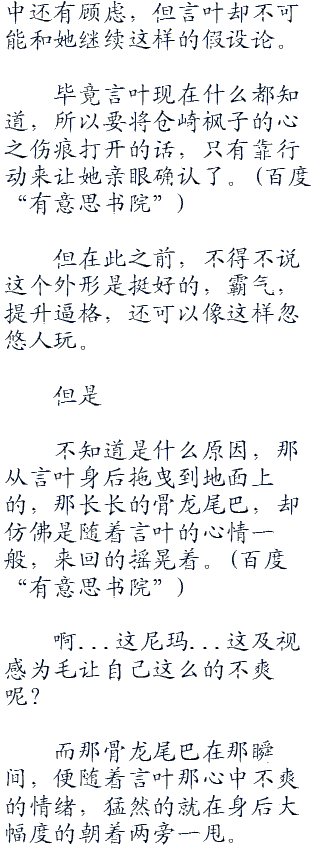 中还有顾虑，但言叶却不可
能和她继续这样的假设论。
毕竟言叶现在什么都知
道，所以要将仓崎枫子的心
之伤痕打开的话，只有靠行
动来让她亲眼确认了。(百度
“有意思书院”)
但在此之前，不得不说
这个外形是挺好的，霸气，
提升逼格，还可以像这样忽
悠人玩。
但是
不知道是什么原因，那
从言叶身后拖曳到地面上
的，那长长的骨龙尾巴，却
仿佛是随着言叶的心情一
般，来回的摇晃着。(百度
“有意思书院”)
啊...这尼玛...这及视
感为毛让自己这么的不爽
呢？
而那骨龙尾巴在那瞬
间，便随着言叶那心中不爽
的情绪，猛然的就在身后大
幅度的朝着两旁一甩。